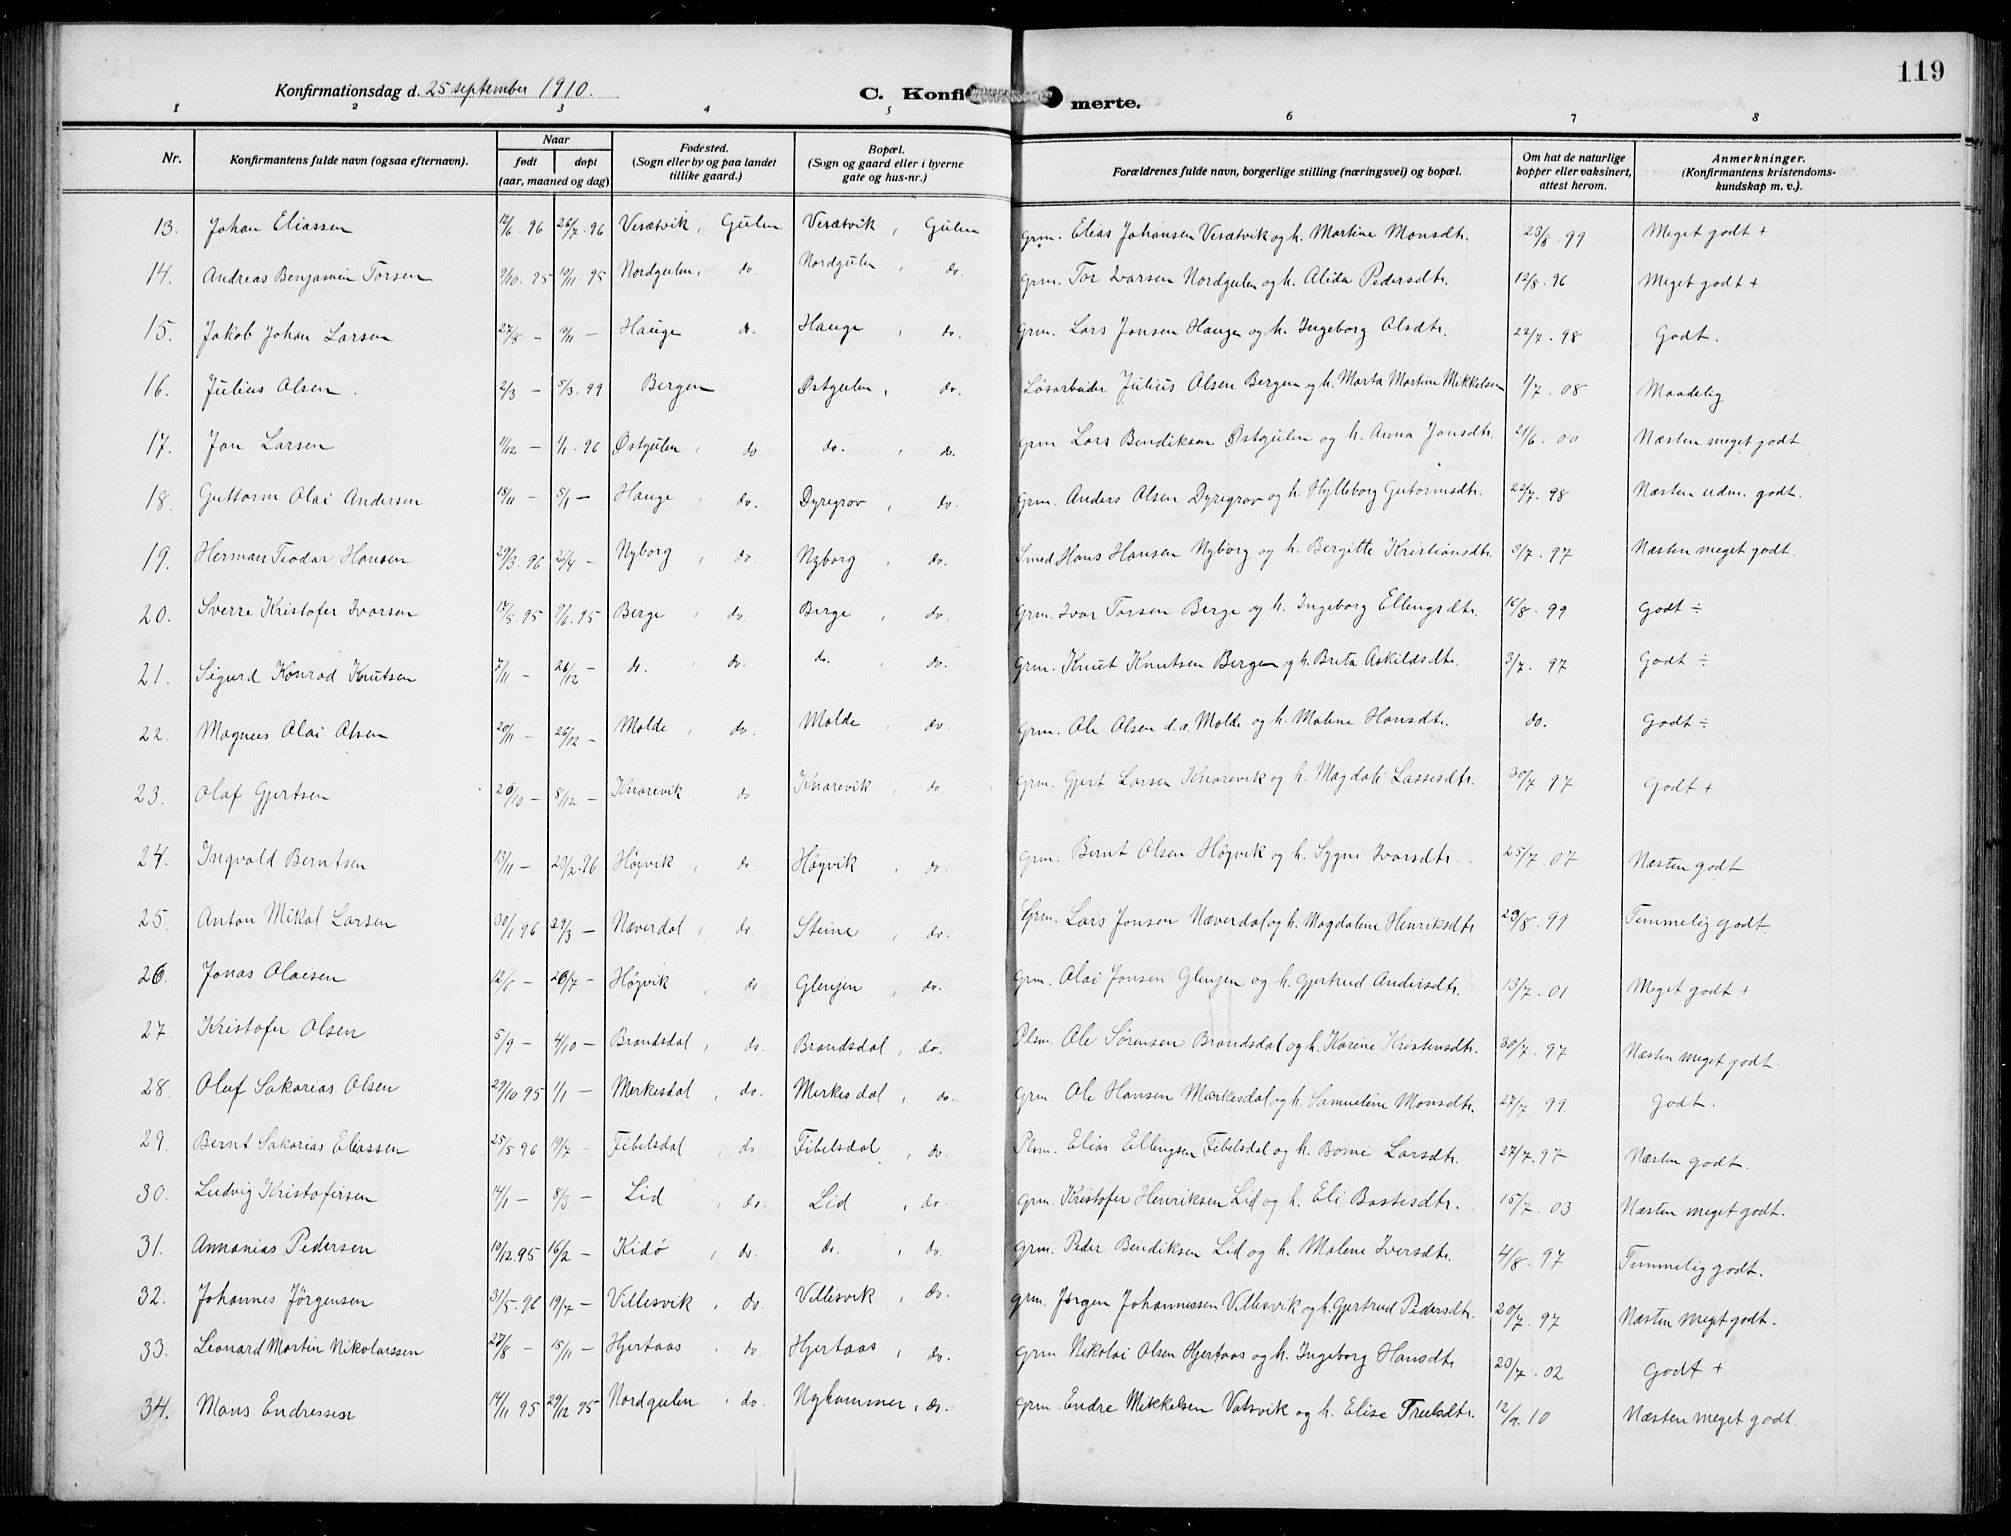 119
Konfirmationsdag d. 25 september 1910.
C. Konfi merte.
1 2 3 4 5 6 7 8
Nr. Konfirmantens fulde navn (ogsaa efternavn). Naar født døpt (aar, maaned og dag) Fødested. (Sogn eller by og paa landet tillike gaard.) Bopæl. (Sogn og gaard eller i byerne gate og hus-nr.) Forældrenes fulde navn, borgerlige stilling (næringsvei) og bopæl. Om hat de naturlige kopper eller vaksinert, attest herom. Anmerkninger. (Konfirmantens kristendomskundskap m. v.).
13. Johan Eliassen 12/6. 96 26/7. 96 Vesætvik, Gulen Vesætvik, Gulen grm. Elias Johansen Vesætvik og h. Martine Monsdtr. 23/8. 99 Meget godt +
14. Andreas Benjamin Torsen 9/10. 95 10/11. 95 Nordgulen, do. Nordgulen, do. grm. Tor Ivarsen Nordgulen og h. Alida Pedersdtr. 12/8. 96 Meget godt +
15. Jakob Johan Larsen 27/8 - 10/11 - Hauge do. Hauge, do. grm. Lars Jonsen Haugen og h. Ingeborg Olsdtr. 22/7. 98 Godt.
16. Julius Olsen. 2/3 - 5/3. 99 Bergen Østgulen, do. Løsarbeider Julius Olsen Bergen og h. Marta Martine Mikkelsen 1/7. 08 Maadelig
17. Jon Larsen 11/12 - 1/1. 96 Østgulen, do do., do. grm Lars Bendiksen Østgulen og h. Anna Jonsdtr. 21/6. 00 Næsten meget godt.
18. Guttorm Olai Andersen 18/11 - 5/1 - Hauge, do. Dyregrov, do. grm. Anders Olsen Dyregrov og h. Hylleborg Gutormsdtr. 22/7. 98 Næsten udm. godt.
19. Herman Teodor Hansen 29/3. 96 26/4 - Nyborg, do. Nyborg, do. Smed Hans Hansen Nyborg og h. Bergitte Kristiansdtr. 3/7. 97 Næsten meget godt.
20. Sverre Kristofer Ivarsen 17/5. 95 9/6. 95 Berge, do. Berge, do. grm. Ivar Torsen Berge og h. Ingeborg Ellingsdtr. 16/8. 99 Godt ÷
21. Sigurd Konrad Knutsen 7/11 - 26/12 - do., do. do., do. grm. Knut Knutsen Bergen og h. Breta Askildsdtr. 3/7. 97 Godt ÷
22. Magnus Olai Olsen 20/11 - 26/12 - Molde, do. Molde, do. grm. Ole Olsen d.æ. Molde og h. Malene Hansdtr. do. Godt ÷
23. Olaf Gjertsen 26/10 - 8/12 - Knarevik, do Knarevik, do. grm. Gjert Larsen Knarevik og h. Magdali Lassesdtr. 30/7. 97 Godt +
24. Ingvald Berntsen 13/11 - 23/2. 96 Høgvik, do. Høgvik, do. grm. Bernt Olsen Høgvik og h. Sygni Ivarsdtr. 25/7. 07 Næsten godt
25. Anton Mikal Larsen 30/1 96 29/3 - Næverdal, do. Steine, do. Grm. Lars Jonsen Næverdal og h. Magdalene Henriksdtr 23/8. 99 Temmelig godt
26. Jonas Olaisen 12/6 - 26/7 - Høgvik, do Glenjen, do. grm. Olai Jonsen Glenjen og h. Gjertrud Andersdtr. 13/7. 01 Meget godt +
27. Kristofer Olsen 5/9 - 4/10 - Brandsdal, do. Brandsdal, do. Plsm. Ole Sørensen Brandsdal og h. Karine Kristensdtr. 30/7. 97 Næsten meget godt.
28. Oluf Sakarias Olsen 29/10 95 1/1 - Merkesdal, do. Merkesdal, do. grm. Ole Hansen Mærkesdal og h. Samueline Monsdtr. 27/7. 99. Godt.
29. Bernt Sakarias Eliassen 25/5 96 19/7 - Fibelsdal, do. Fibelsdal, do. Plsm. Elias Ellingsen Fibelsdal og h. Borni Larsdtr. 27/7. 97 Næsten godt.
30. Ludvig Kristofersen 14/1 - 8/3 - Lid, do. Lid, do. grm. Kristofer Henriksen Lid og h. Eli Bastesdtr. 15/7. 03 Næsten meget godt.
31. Annanias Pedersen 10/12. 95 16/2 - Kidø, do. do., do. grm. Peder Bendiksen Lid og h. Malene Iversdtr. 4/8. 97 Temmelig godt.
32. Johannes Jørgensen 31/5. 96 19/7 - Villesvik, do. Villesvik, do. grm. Jørgen Johannessen Villesvik og h. Gjertrud Pedersdtr. 20/7. 97 Næsten meget godt.
33. Leonard Martin Nikolaissen 27/8 - 15/11 - Hjertaas, do. Hjertaas, do. grm Nikolai Olsen Hjertaas og h. Ingeborg Hansdtr 23/7. 02 Godt +
34. Mons Endressen 14/11 95 29/12 95 Nordgulen, do. Nyhammer, do. grm. Endre Mikkelsen Vatsvik og h. Elise Truelsdtr. 12/9. 10 Næsten meget godt.